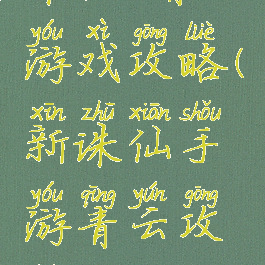 yóu xì gōng lüè
游戏攻略(
xīn zhū xiān shǒu
新诛仙手
yóu qīng yún gōng
游青云攻